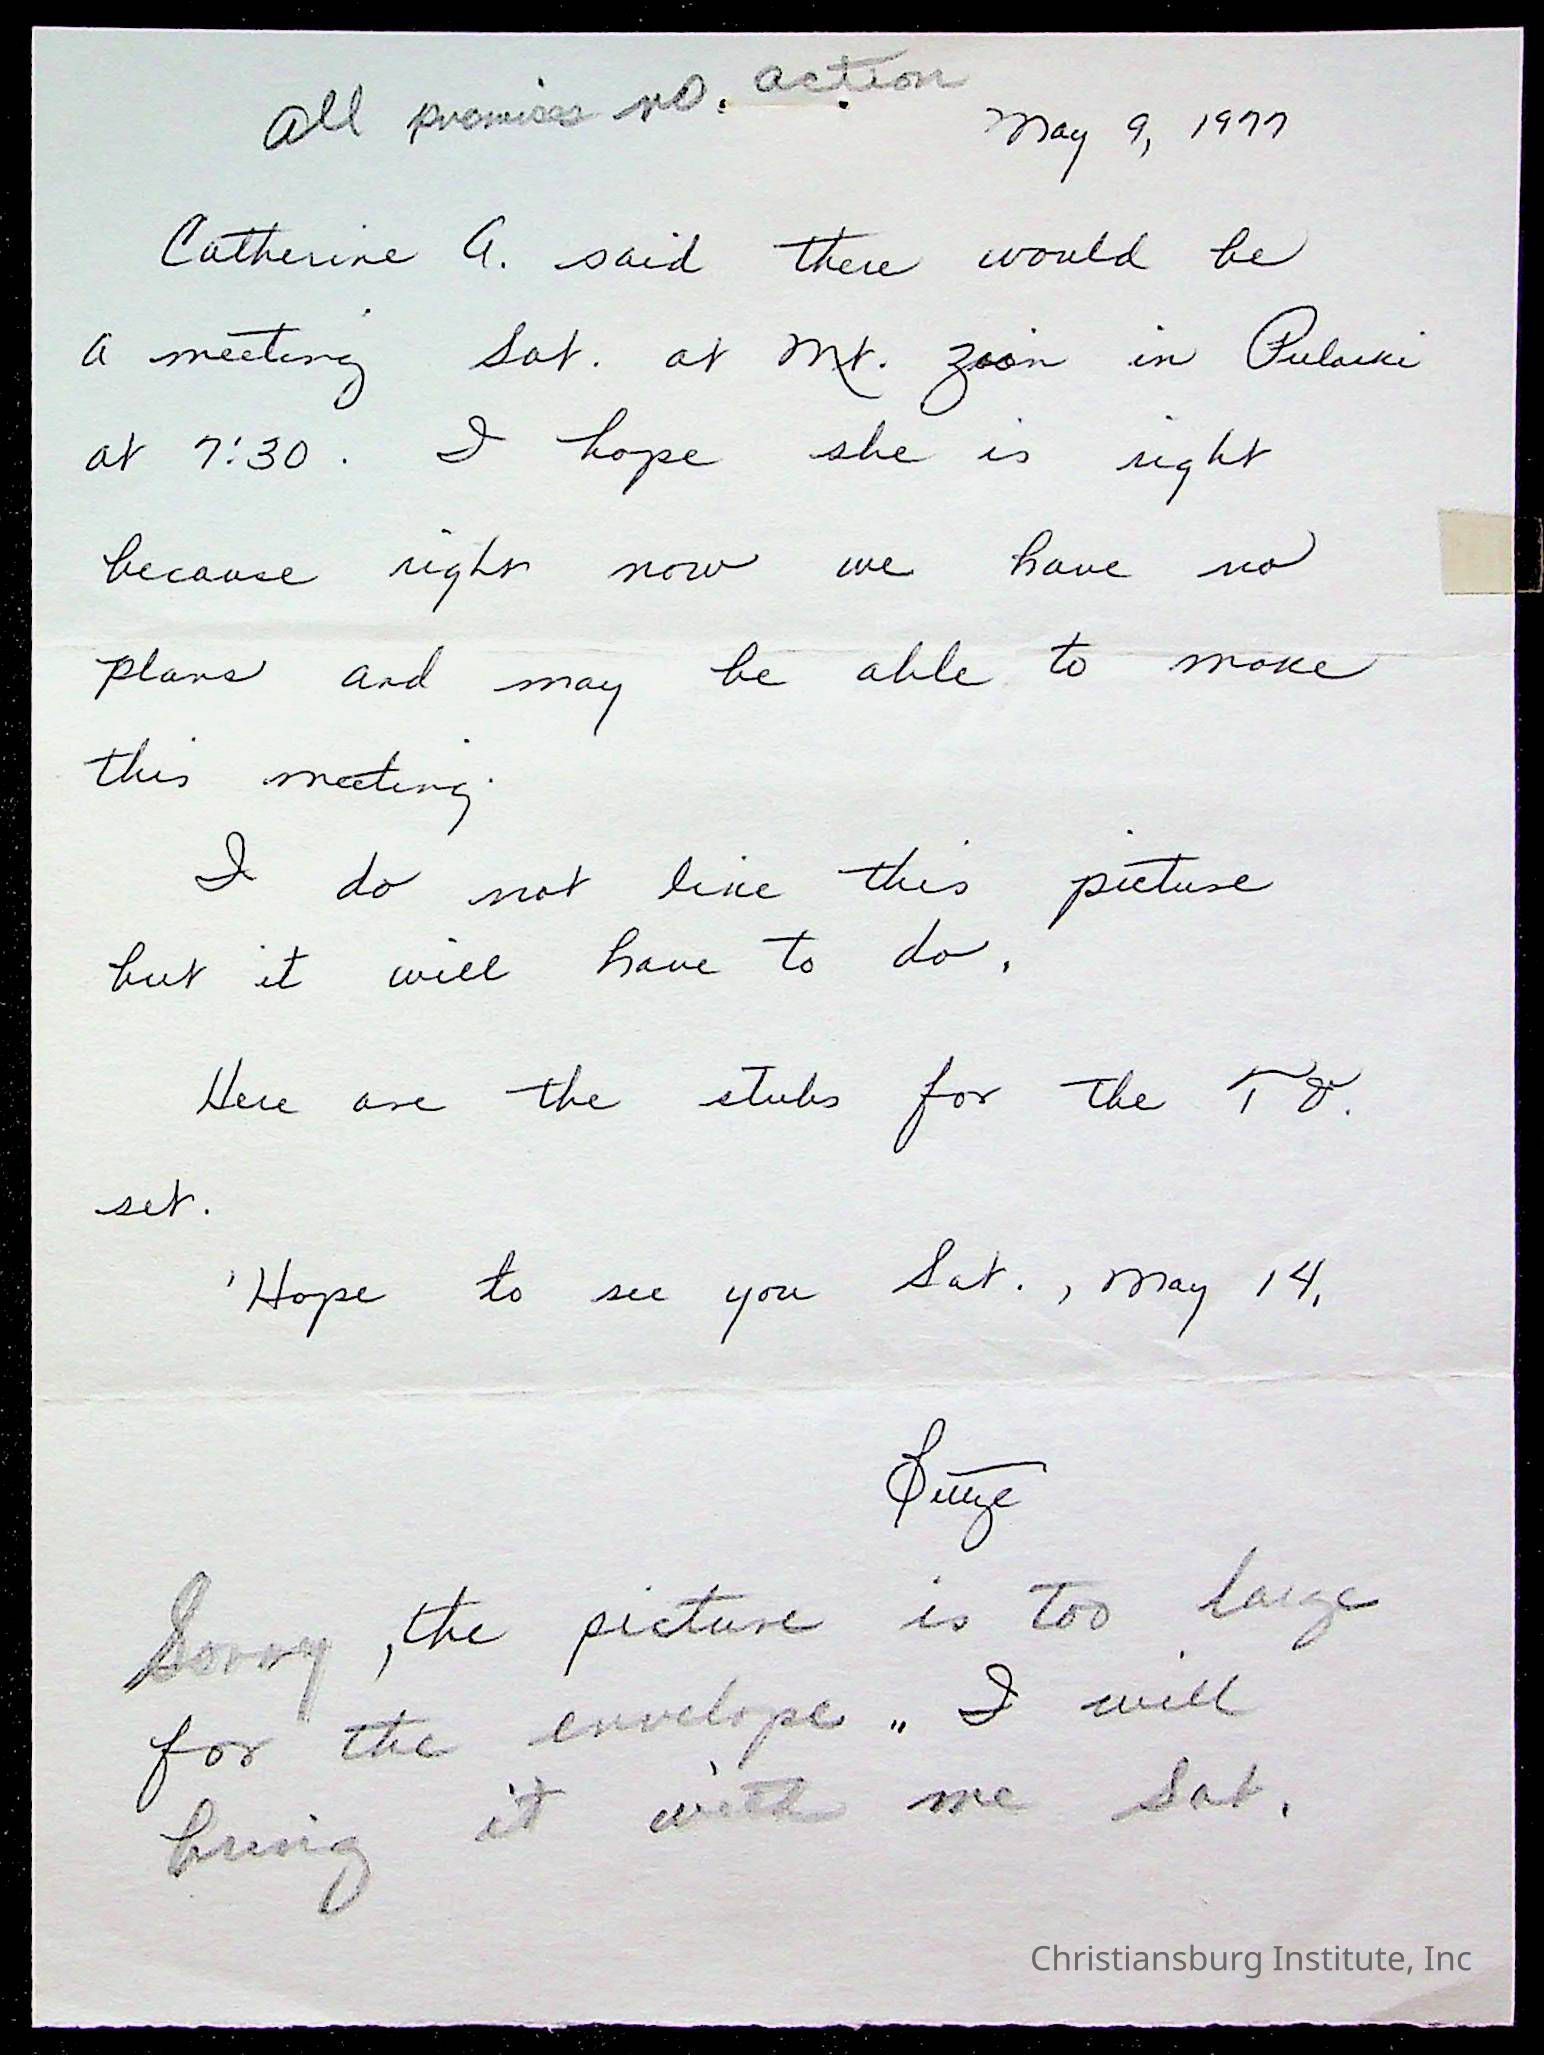 All promises no. action
May 9, 1977
Catherine A. said there would be
a meeting Sat. at Mt. Zion in Pulaski
at 7:30. I hope she is right
because right now we have no
plans and may be able to make
this meeting.
I do not like this picture
but it will have to do.
Here are the stubs for the T V.
set.
Hope to see you Sat., May 14.
Sorry, the picture is too large
for the envelope,, I will
bring it with me Sat.
Christiansburg Institute, Inc